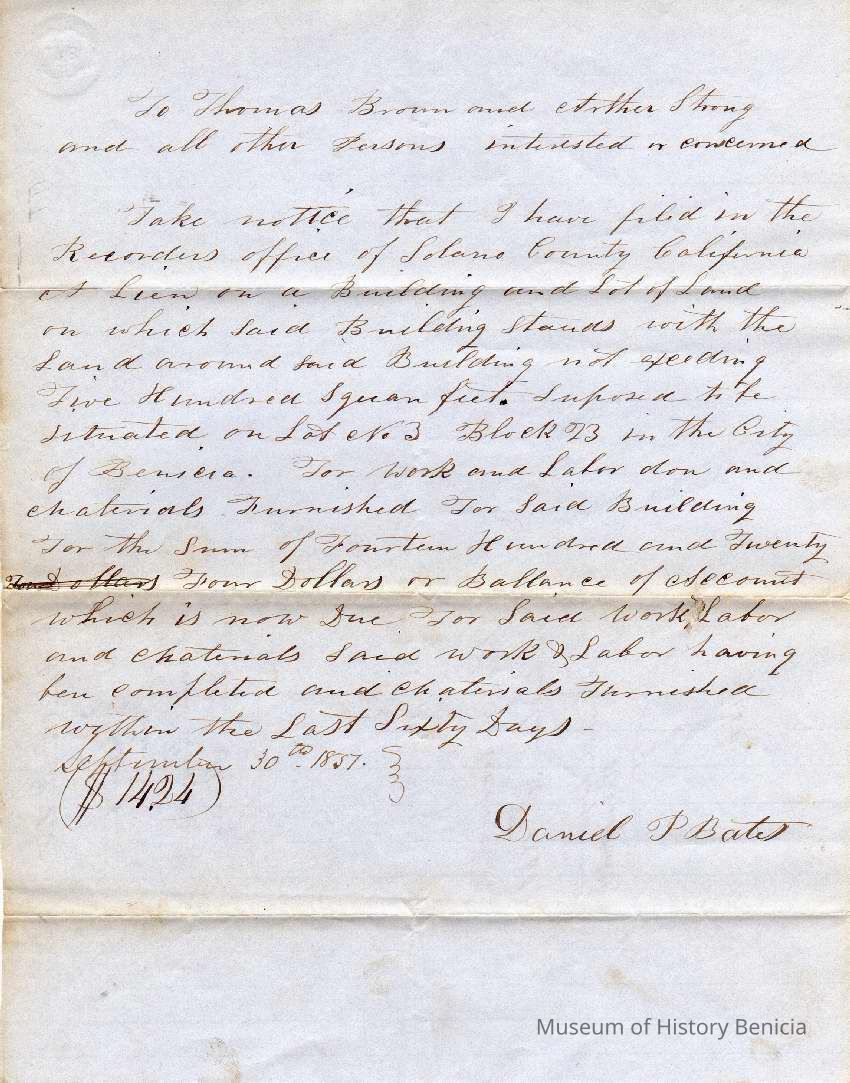 To Thomas Brown and Arther Strong
and all other Persons interested or concerned
Take notice that I have filed in the
Recorders office of Solano County California
A Lien on a Building and Lot of Land
on which Said Building Stands with the
Land around said Building not exeeding
Five Hundred Squar feet. Suposed to be
situated on Lot No 3 Block 23 in the City
of Benicia. For work and Labor don and
Materials Furnished For Said Building
For the Sum of Fourteen Hundred and Twenty
Dollars Four Dollars or Ballance of Account
which is now Due For Said Work, Labor
and Materials Said work & Labor having
ben completed and Materials Furnished
wythin the Last Sixty Days -
September 30th 1857.
($ 1424)
Daniel P Bates
Museum of History Benicia